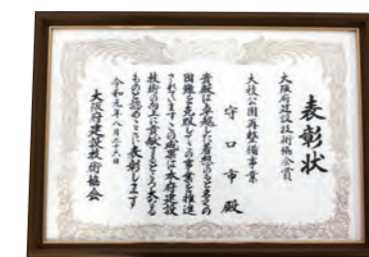 表彰状
大阪府建設技術協会賞
大枝公園再整備事業
守口市殿
貴殿は卓越した着想のもと多くの
困難を克服してこの事業を推進
されていますこの成果は本府建設
技術の向上に貢献するところ大なる
ものと認めここに表彰します
令和元年八月二十六日
大阪府建設技術協会